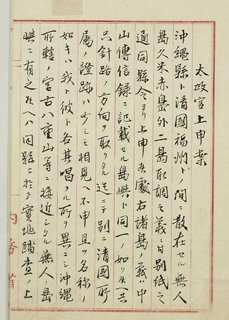 太政官上申案
沖縄縣ト清國福州トノ間ニ散在セル無人
島久米赤島外二島取調之義ニ付別紙之
通同縣令ヨリ上申候處右諸島ノ義ハ中
山傳信録ニ記載セル島嶼ト同一ノ如ク候ヘ共
只針路ノ方向ヲ取リタル迄ニテ別ニ清國所
属ノ證跡ハ少シモ相見ヘ不申且ツ名称ノ
如キハ我ト彼ト各其唱フル所ヲ異ニシ沖縄
所轄ノ宮古八重山等ニ接近シタル無人ノ島
嶼ニ有之候ヘハ同縣ニ於テ實地踏査ノ上
内務省